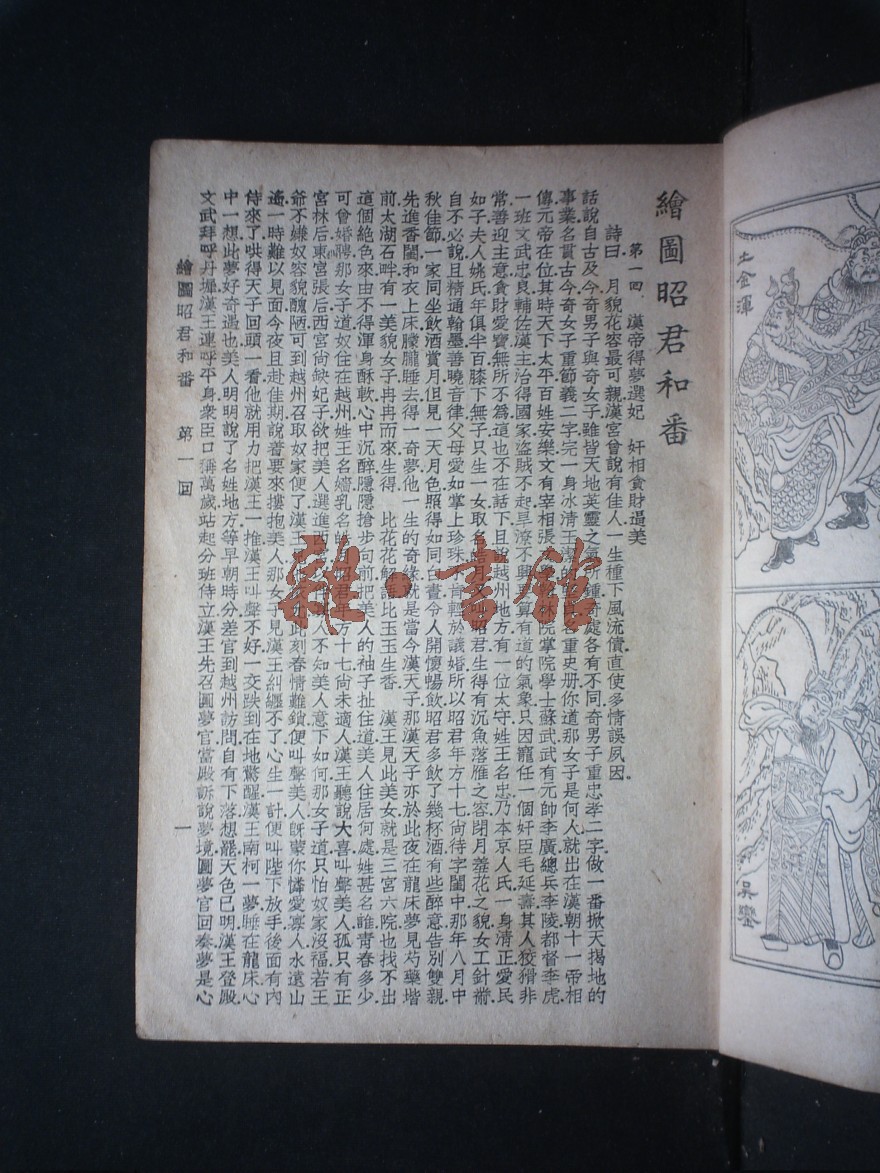 繪圖昭君和番
第一回 漢帝得夢選妃 奸相貪財逼美
詩曰 月貌花容最可親漢宮曾說有佳人一生種下風流債直使多情誤夙因
話說自古及今奇男子與奇女子雖皆天地英靈之氣所鍾奇處各有不同奇男子重忠孝二字做一番掀天揭地的
事業名貫古今奇女子重節義二字完一身冰清玉潔名重史册你道那女子是何人就出在漢朝十一帝相
傳元帝在位其時天下太平百姓安樂文有宰相張林院掌院學士蘇武武有元帥李廣總兵李陵都督李虎
一班文武忠良輔佐漢主治得國家盜賊不起旱潦不興算有道的氣象只因寵任一個奸臣毛延壽其人狡猾非
常善迎主意貪財愛寶無所不爲這也不在話下且說越州地方有一位太守姓王名忠乃本京人氏一身清正愛民
如子夫人姚氏年俱半百膝下無子只生一女取名皓月又叫昭君生得有沉魚落雁之容閉月羞花之貌女工針黹
自不必說且精通翰墨善曉音律父母愛如掌上珍珠不肯輕於議婚所以昭君年方十七尙待字閨中那年八月中
秋佳節一家同坐飲酒賞月但見一天月色照得如同白晝令人開懷暢飲昭君多飲了幾杯酒有些醉意告別雙親
先進香閨和衣上床朦朧睡去得一奇夢他一生的奇緣就是當今漢天子那漢天子亦於此夜在龍床夢見芍藥堦
前太湖石畔有一美貌女子冉冉而來生得 比花花解語比玉玉生香 漢王見此美女就是三宮六院也找不出
這個絕色來由不得渾身酥軟心中沉醉隱隱搶步向前把美人的袖子扯住道美人住居何處姓甚名誰靑春多少
可曾婚聘那女子道奴住在越州姓王名嬙乳名昭君年方十七尙未適人漢王聽說大喜叫聲美人孤只有正
宮林后東宮張后西宮尙缺妃子欲把美人選進西人不知美人意下如何那女子道只怕奴家沒福若王
爺不嫌奴容貌醜陋可到越州召取奴家便了漢王此刻春情難鎖便叫聲美人旣蒙你憐愛寡人水遠山
遙一時難以見面今夜且赴佳期說着要來摟抱美人那女子見漢王糾纏不了心生一計便叫陛下放手後面有內
侍來了哄得天子回頭一看他就用力把漢王一推漢王叫聲不好一交跌到在地驚醒漢王南柯一夢睡在龍床心
中一想此夢好奇遇也美人明明說了名姓地方等早朝時分差官到越州訪問自有下落想罷天色已明漢王登殿
文武拜呼丹墀漢王連呼平身衆臣口稱萬歲站起分班侍立漢王先召圓夢官當殿訴說夢境圓夢官回奏夢是心
繪圖昭君和番 第一回 一
土金渾
吳鑾
雜·書館